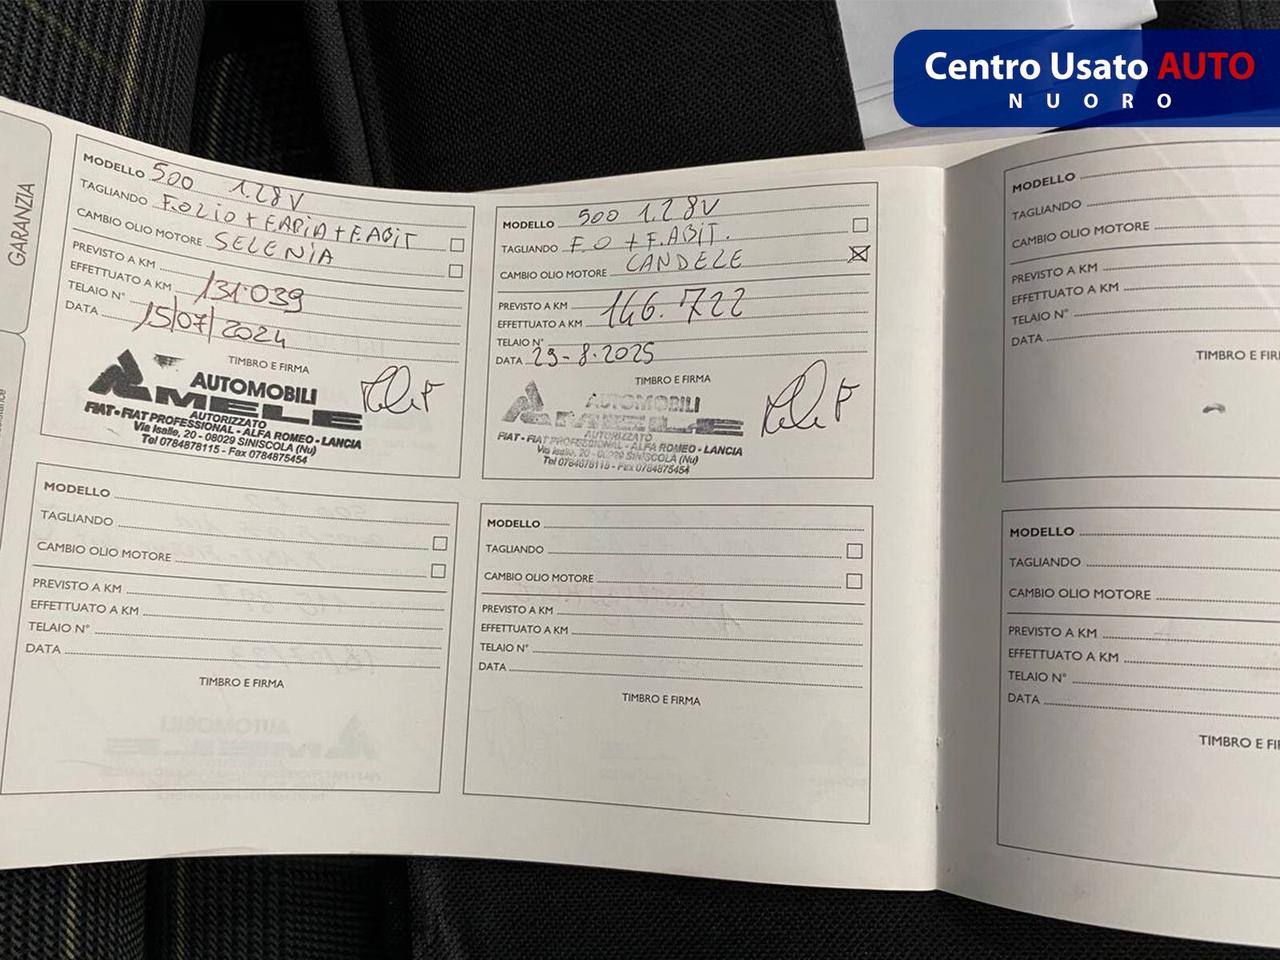 Centro Usato AUTO
NUORO
GARANZIA
MODELLO 500 1.2 8V
TAGLIANDO F.OLIO + F.ARIA + F.ABIT
CAMBIO OLIO MOTORE SELENIA
PREVISTO A KM
EFFETTUATO A KM 131.039
TELAIO N°
DATA 15/07/2024
TIMBRO E FIRMA
AUTOMOBILI
MELE
AUTORIZZATO
FIAT - FIAT PROFESSIONAL - ALFA ROMEO - LANCIA
Via Isalle, 20 - 08029 SINISCOLA (Nu)
Tel 0784878115 - Fax 0784875454
MODELLO 500 1.2 8V
TAGLIANDO F.O + F.ABIT.
CAMBIO OLIO MOTORE CANDELE
PREVISTO A KM
EFFETTUATO A KM 146.722
TELAIO N°
DATA 29-8-2025
TIMBRO E FIRMA
AUTOMOBILI
MELE
AUTORIZZATO
FIAT - FIAT PROFESSIONAL - ALFA ROMEO - LANCIA
Via Isalle, 20 - 08029 SINISCOLA (Nu)
Tel 0784878115 - Fax 0784875454
MODELLO
TAGLIANDO
CAMBIO OLIO MOTORE
PREVISTO A KM
EFFETTUATO A KM
TELAIO N°
DATA
TIMBRO E FI
MODELLO
TAGLIANDO
CAMBIO OLIO MOTORE
PREVISTO A KM
EFFETTUATO A KM
TELAIO N°
DATA
TIMBRO E FIRMA
MODELLO
TAGLIANDO
CAMBIO OLIO MOTORE
PREVISTO A KM
EFFETTUATO A KM
TELAIO N°
DATA
TIMBRO E FIRMA
MODELLO
TAGLIANDO
CAMBIO OLIO MOTORE
PREVISTO A KM
EFFETTUATO A KM
TELAIO N°
DATA
TIMBRO E FI